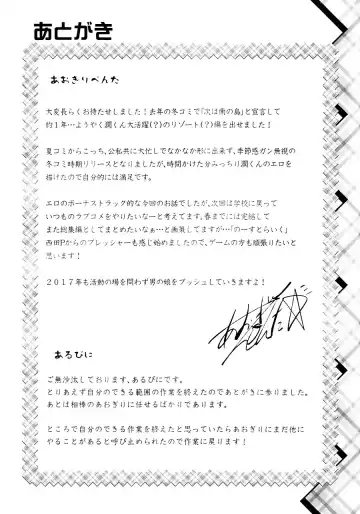 あとがき
あおきりぺんた
大変長らくお待たせしました！去年の冬コミで『次は南の島』と宣言して
約１年…ようやく潤くん大活躍(？)のリゾート(？)編を出せました！
夏コミからこっち、公私共に大忙しでなかなか形に出来ず、季節感ガン無視の
冬コミ時期リリースとなりましたが、時間かけた分みっちり潤くんのエロを
描けたので自分的には満足です。
エロのボーナストラック的な今回のお話でしたが、次回は学校に戻って
いつものラブコメをやりたいなーと考えてます。春までには完結して
また総集編としてまとめたいなぁ…と画策してますが…「のーすとらいく」
西田Pからのプレッシャーも感じ始めましたので、ゲームの方も頑張りたいと
思います！
２０１７年も活動の場を問わず男の娘をプッシュしていきますよ！
あるぴに
ご無沙汰しております、あるぴにです。
とりあえず自分のできる範囲の作業を終えたのであとがきに参りました。
あとは相棒のあおぎりに任せるばかりであります。
ところで自分のできる作業を終えたと思っていたらあおぎりにまだ他に
やることがあると呼び止められたので作業に戻ります！